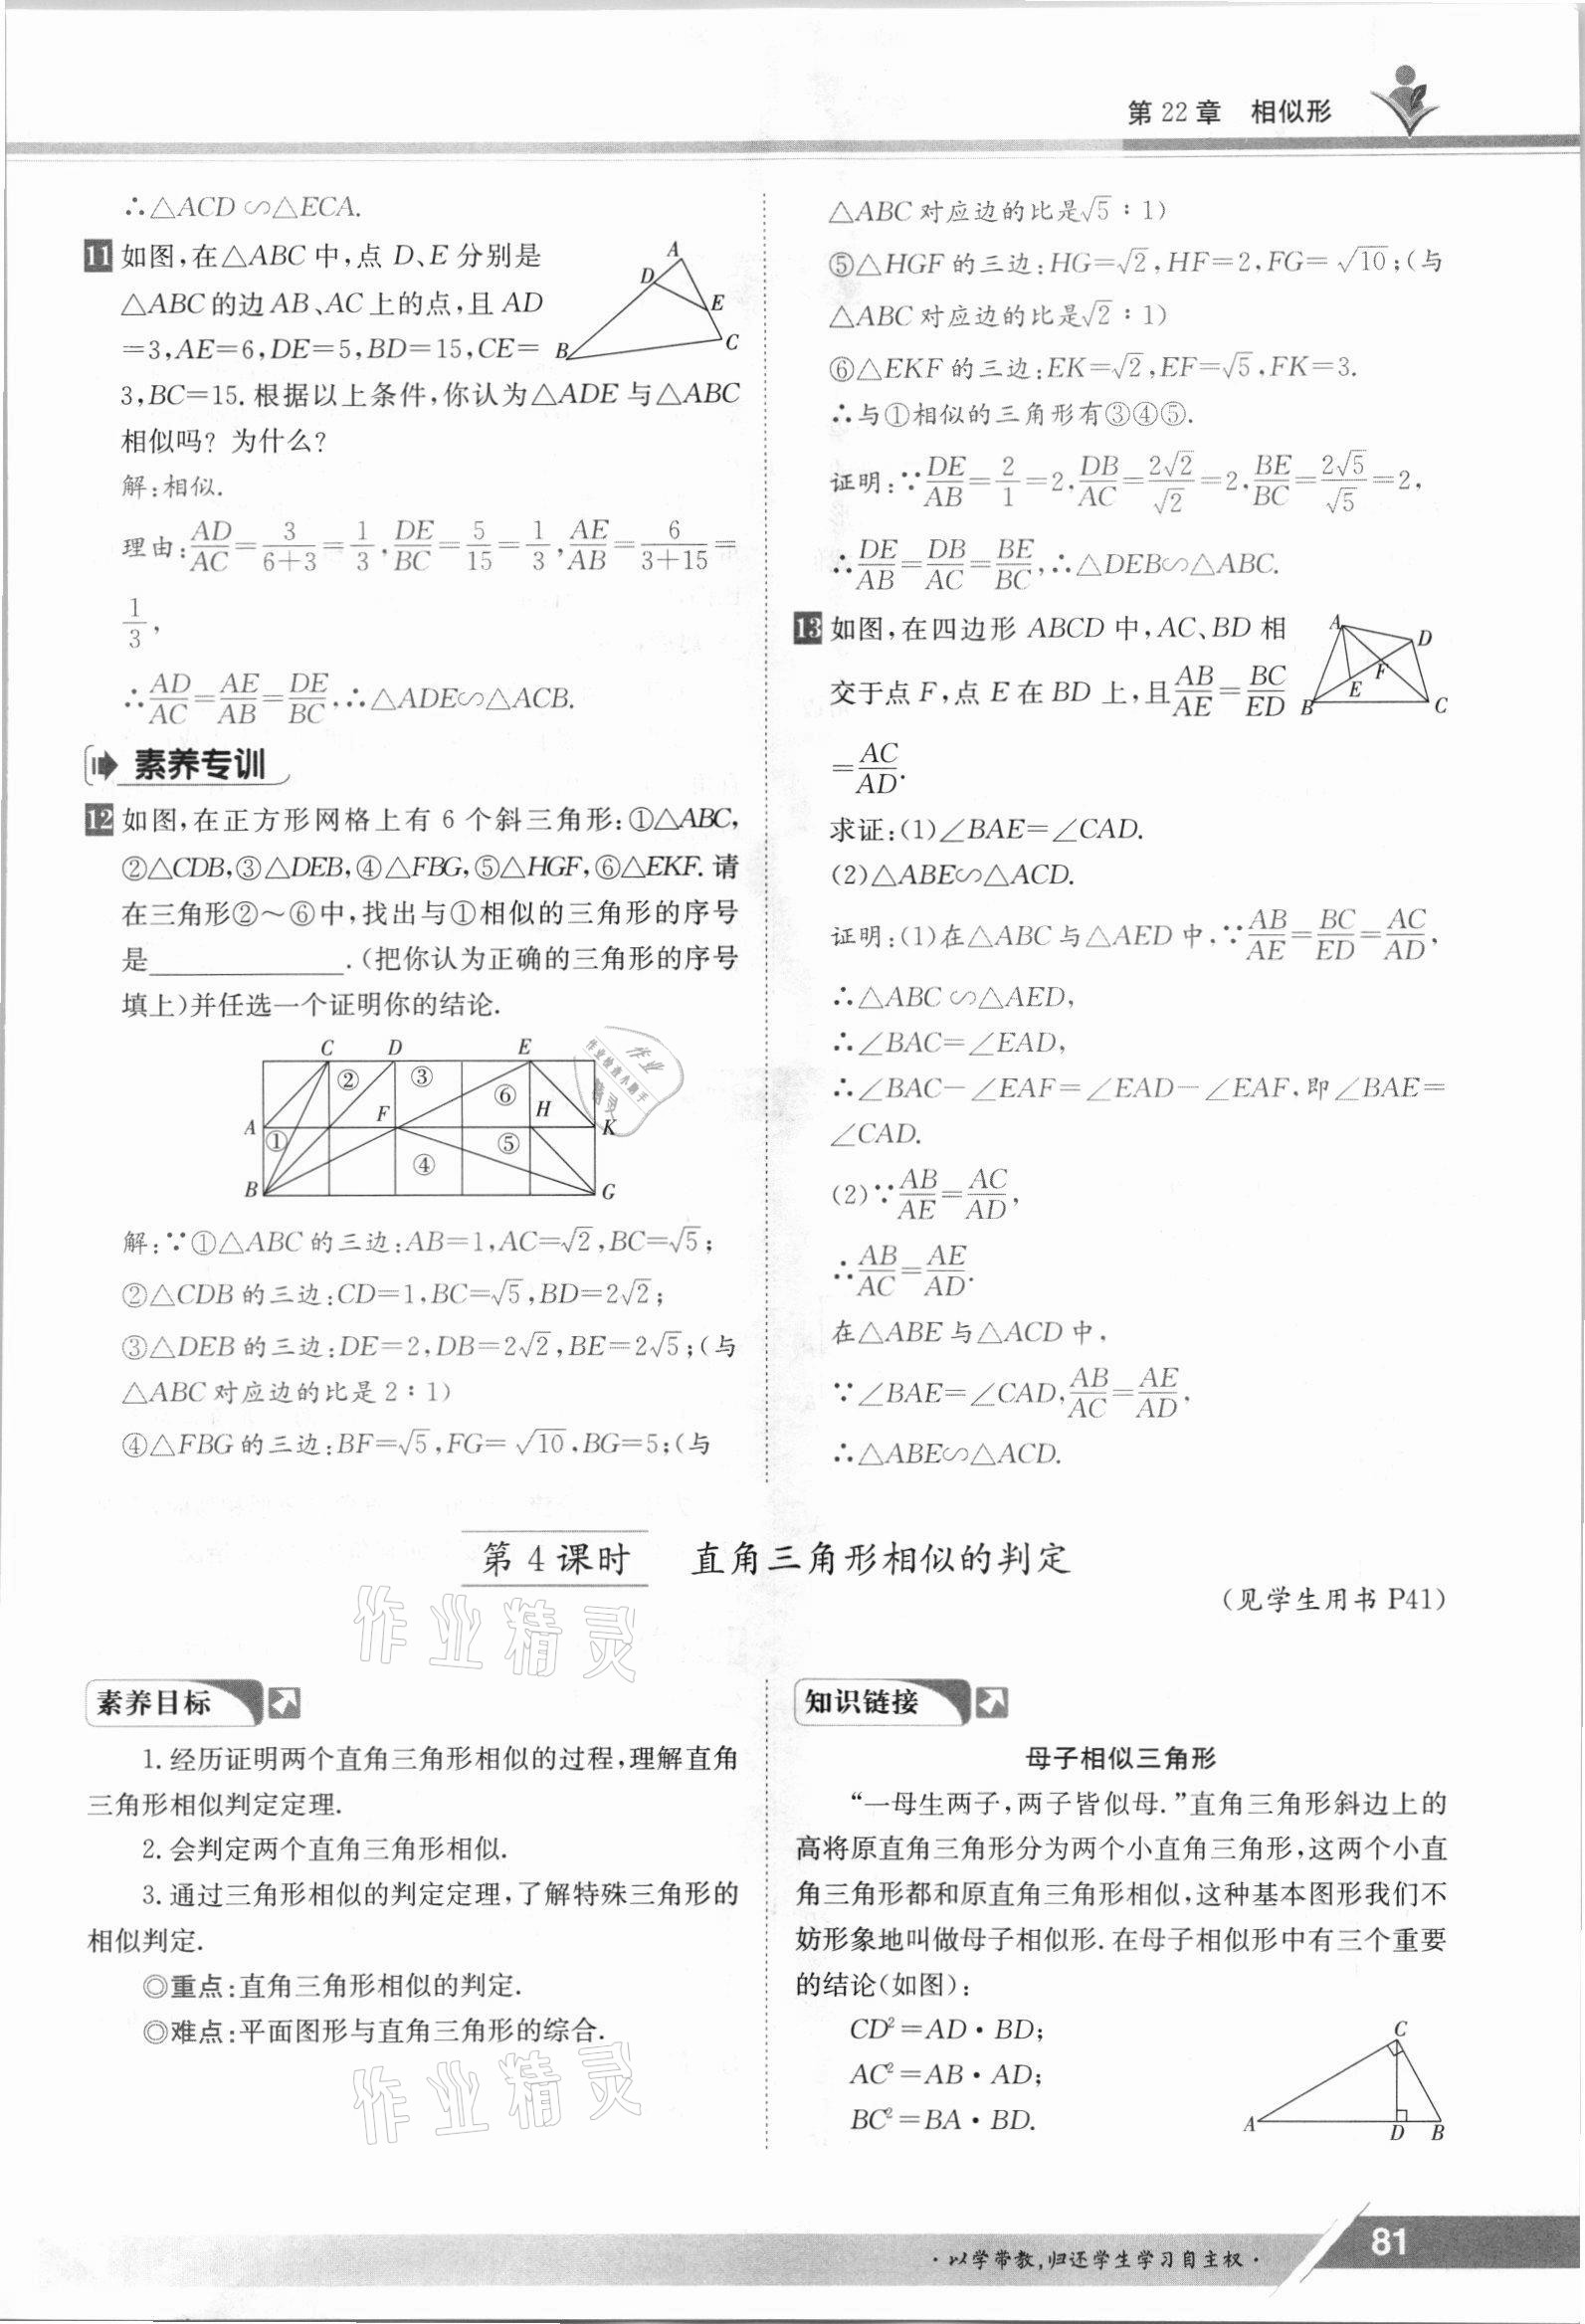 第22章 相似形
∴△ACD∽△ECA.
11 如图,在△ABC中,点D、E分别是
△ABC的边AB、AC上的点,且AD
=3,AE=6,DE=5,BD=15,CE=
3,BC=15.根据以上条件,你认为△ADE与△ABC
相似吗?为什么?
A
D
E
B
C
解:相似.
理由:AD/AC=3/(6+3)=1/3,DE/BC=5/15=1/3,AE/AB=6/(3+15)=
1/3,
∴AD/AC=AE/AB=DE/BC,∴△ADE∽△ACB.
素养专训
12 如图,在正方形网格上有6个斜三角形:①△ABC,
②△CDB,③△DEB,④△FBG,⑤△HGF,⑥△EKF.请
在三角形②~⑥中,找出与①相似的三角形的序号
是____________.(把你认为正确的三角形的序号
填上)并任选一个证明你的结论.
C D E
② ③ ⑥
A F H K
① ④ ⑤
B G
解:∵①△ABC的三边:AB=1,AC=√2,BC=√5;
②△CDB的三边:CD=1,BC=√5,BD=2√2;
③△DEB的三边:DE=2,DB=2√2,BE=2√5;(与
△ABC对应边的比是2:1)
④△FBG的三边:BF=√5,FG=√10,BG=5;(与
△ABC对应边的比是√5:1)
⑤△HGF的三边:HG=√2,HF=2,FG=√10;(与
△ABC对应边的比是√2:1)
⑥△EKF的三边:EK=√2,EF=√5,FK=3.
∴与①相似的三角形有③④⑤.
证明:∵DE/AB=2/1=2,DB/AC=2√2/√2=2,BE/BC=2√5/√5=2,
∴DE/AB=DB/AC=BE/BC,∴△DEB∽△ABC.
13 如图,在四边形ABCD中,AC、BD相
交于点F,点E在BD上,且AB/AE=BC/ED
=AC/AD.
A
D
F
E
B
C
求证:(1)∠BAE=∠CAD.
(2)△ABE∽△ACD.
证明:(1)在△ABC与△AED中,∵AB/AE=BC/ED=AC/AD,
∴△ABC∽△AED,
∴∠BAC=∠EAD,
∴∠BAC-∠EAF=∠EAD-∠EAF,即∠BAE=
∠CAD.
(2)∵AB/AE=AC/AD,
∴AB/AC=AE/AD.
在△ABE与△ACD中,
∵∠BAE=∠CAD,AB/AC=AE/AD,
∴△ABE∽△ACD.
第4课时 直角三角形相似的判定
(见学生用书P41)
作业精灵
素养目标
1.经历证明两个直角三角形相似的过程,理解直角
三角形相似判定定理.
2.会判定两个直角三角形相似.
3.通过三角形相似的判定定理,了解特殊三角形的
相似判定.
◎重点:直角三角形相似的判定.
◎难点:平面图形与直角三角形的综合.
作业精灵
知识链接
母子相似三角形
“一母生两子,两子皆似母.”直角三角形斜边上的
高将原直角三角形分为两个小直角三角形,这两个小直
角三角形都和原直角三角形相似,这种基本图形我们不
妨形象地叫做母子相似形.在母子相似形中有三个重要
的结论(如图):
CD²=AD·BD;
AC²=AB·AD;
BC²=BA·BD.
C
A D B
·以学带教,归还学生学习自主权·
81